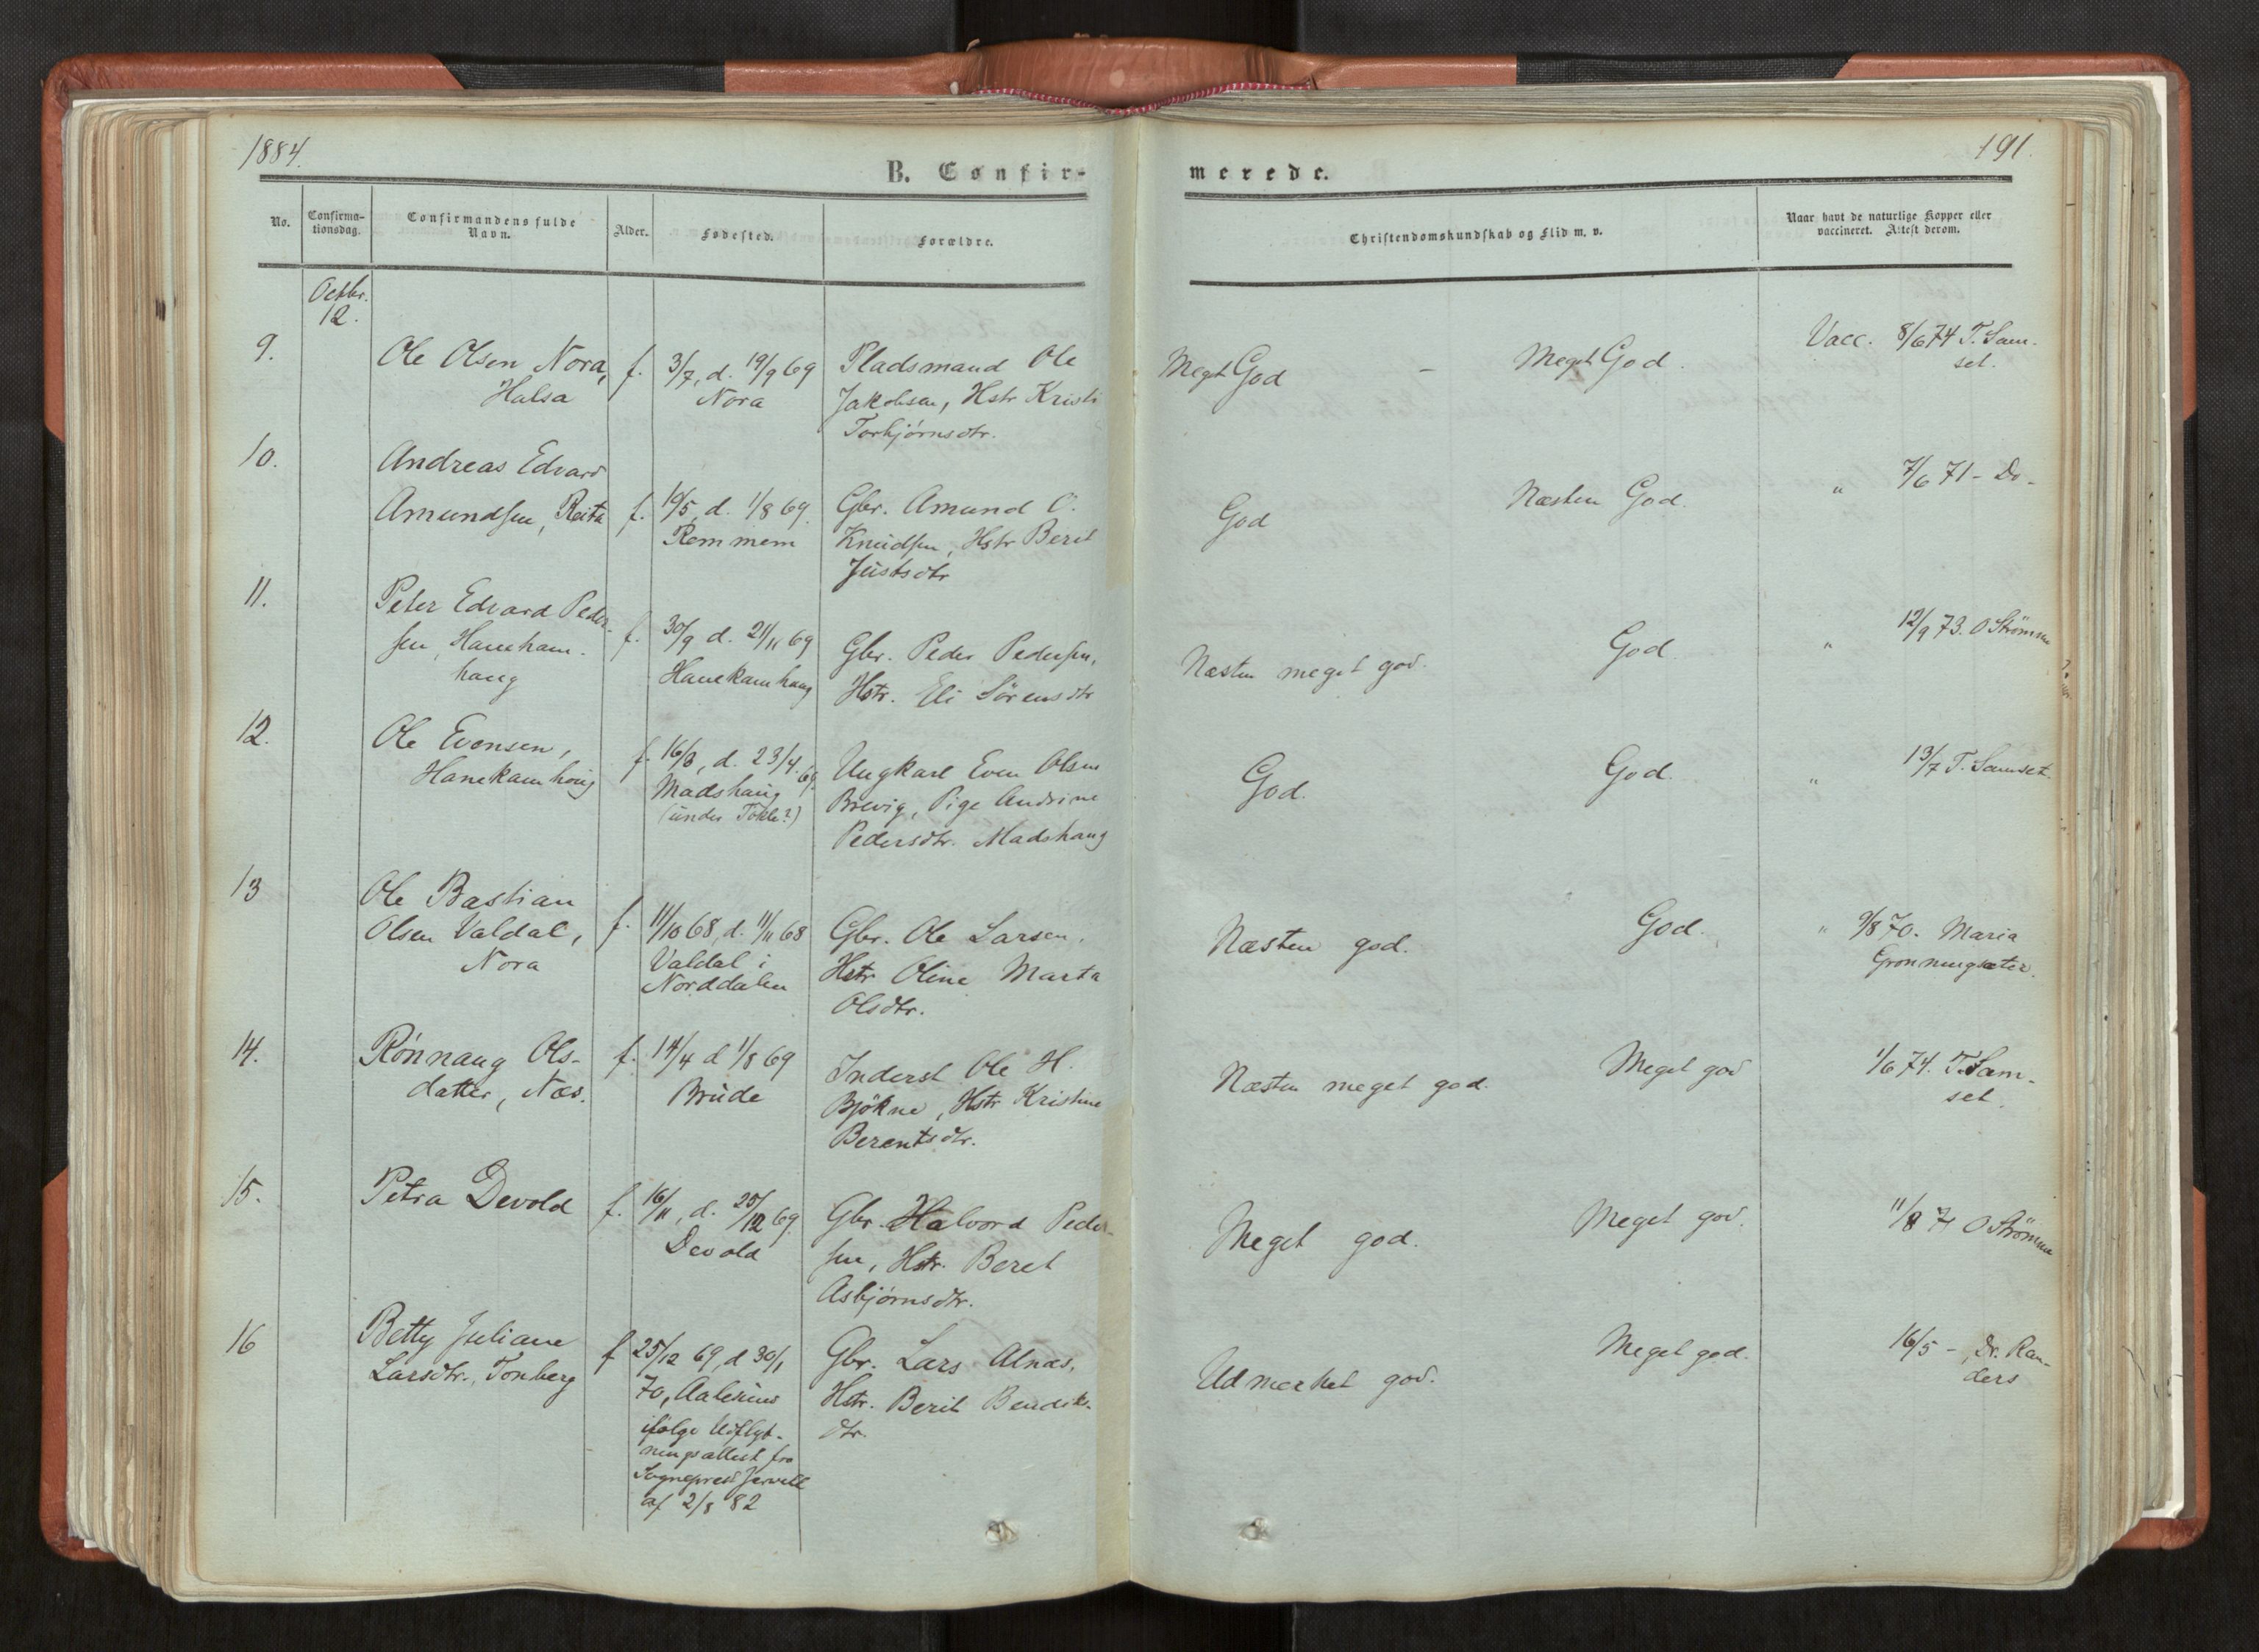 1884.
191.
B. Confirmerede.
No.
Confirma-
tionsdag.
Confirmandens fulde
Navn.
Alder.
Fødested.
Forældre.
Christendomskundskab og Flid m. v.
Naar havt de naturlige Kopper eller
vaccineret. Attest derom.
Octbr.
12.
9.
Ole Olsen Nora,
Halsa
f. 3/7, d. 19/9 69
Nora
Pladsmand Ole
Jakobsen, Hstr Kristi
Torbjörnsdtr.
Meget God
-
Meget God.
Vacc. 8/6 74 T. Sam-
set.
10.
Andreas Edvard
Amundsen, Reita
f. 19/5, d. 1/8 69.
Remmem
Gbr. Amund O.
Knudsen, Hstr Berit
Justsdtr
God
Næsten God.
" 7/6 71 - Do -
11.
Peter Edvard Peder-
sen, Hanekam-
haug
f. 30/9 d. 21/11 69
Hanekamhaug
Gbr. Peder Pedersen,
Hstr. Eli Sörensdtr
Næsten meget god.
God.
" 12/9 73. O Strömme
12.
Ole Evensen,
Hanekamhoug
f. 16/3, d. 23/4 69.
Madshaug
(under Tokle?)
Ungkarl Even Olsen
Brevig, Pige Andrine
Pedersdtr. Madshaug
God.
God.
" 13/7 T. Samset.
13
Ole Bastian
Olsen Valdal,
Nora
f. 11/10 68, d. 11/11 68
Valdal i
Norddalen
Gbr. Ole Larsen,
Hstr Oline Marta
Olsdtr.
Næsten god.
God.
" 9/8 70. Maria
Grønningsæter.
14.
Rönnaug Ols-
datter, Næs.
f. 14/4 d 1/8 69
Brude
Inderst Ole H.
Bjökne, Hstr Kristine
Berentsdtr.
Næsten meget god.
Meget god
1/6 74. T. Sam-
set.
15.
Petra Devold
f. 16/11, d. 25/12 69.
Devold
Gbr. Halvord Peder-
sen, Hstr. Beret
Asbjörnsdtr.
Meget god.
Meget god.
11/8 71 O Strömme
16
Betty Juliane
Larsdtr., Tonberg
f 25/12 69, d 30/1
70, Aalesund
ifølge Udflyt-
ningsattest fra
Sogneprest Jervell
af 2/8 82
Gbr. Lars Alnæs,
Hstr. Berit Bendiks-
dtr.
Udmerket god.
Meget god.
16/5 -, Dr. Ran-
ders